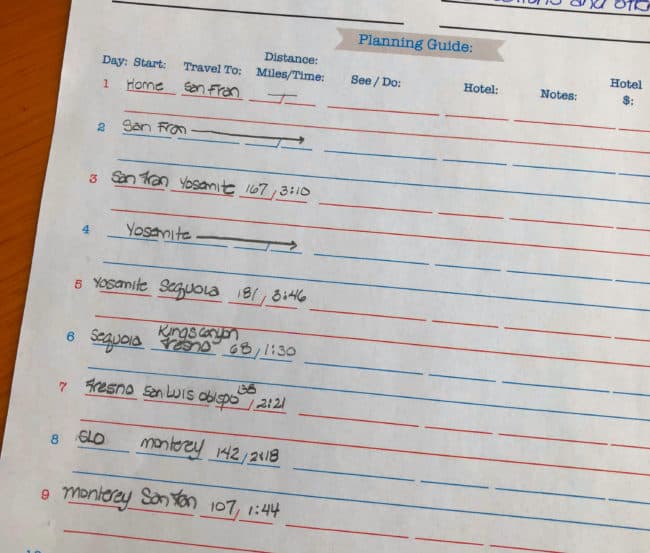 and
Planning Guide:
Day: Start: Travel To: Distance: Miles/Time: See / Do: Hotel: Notes: Hotel $:
1 Home San Fran
2 San Fran
3 San Fran Yosemite 167, 3:10
4 Yosemite
5 Yosemite Sequoia 181, 3:46
6 Sequoia Kings Canyon Fresno 68, 1:30
7 Fresno San Luis obispo 138, 2:21
8 SLO monterey 142, 2:18
9 monterey San Fran 107, 1:44